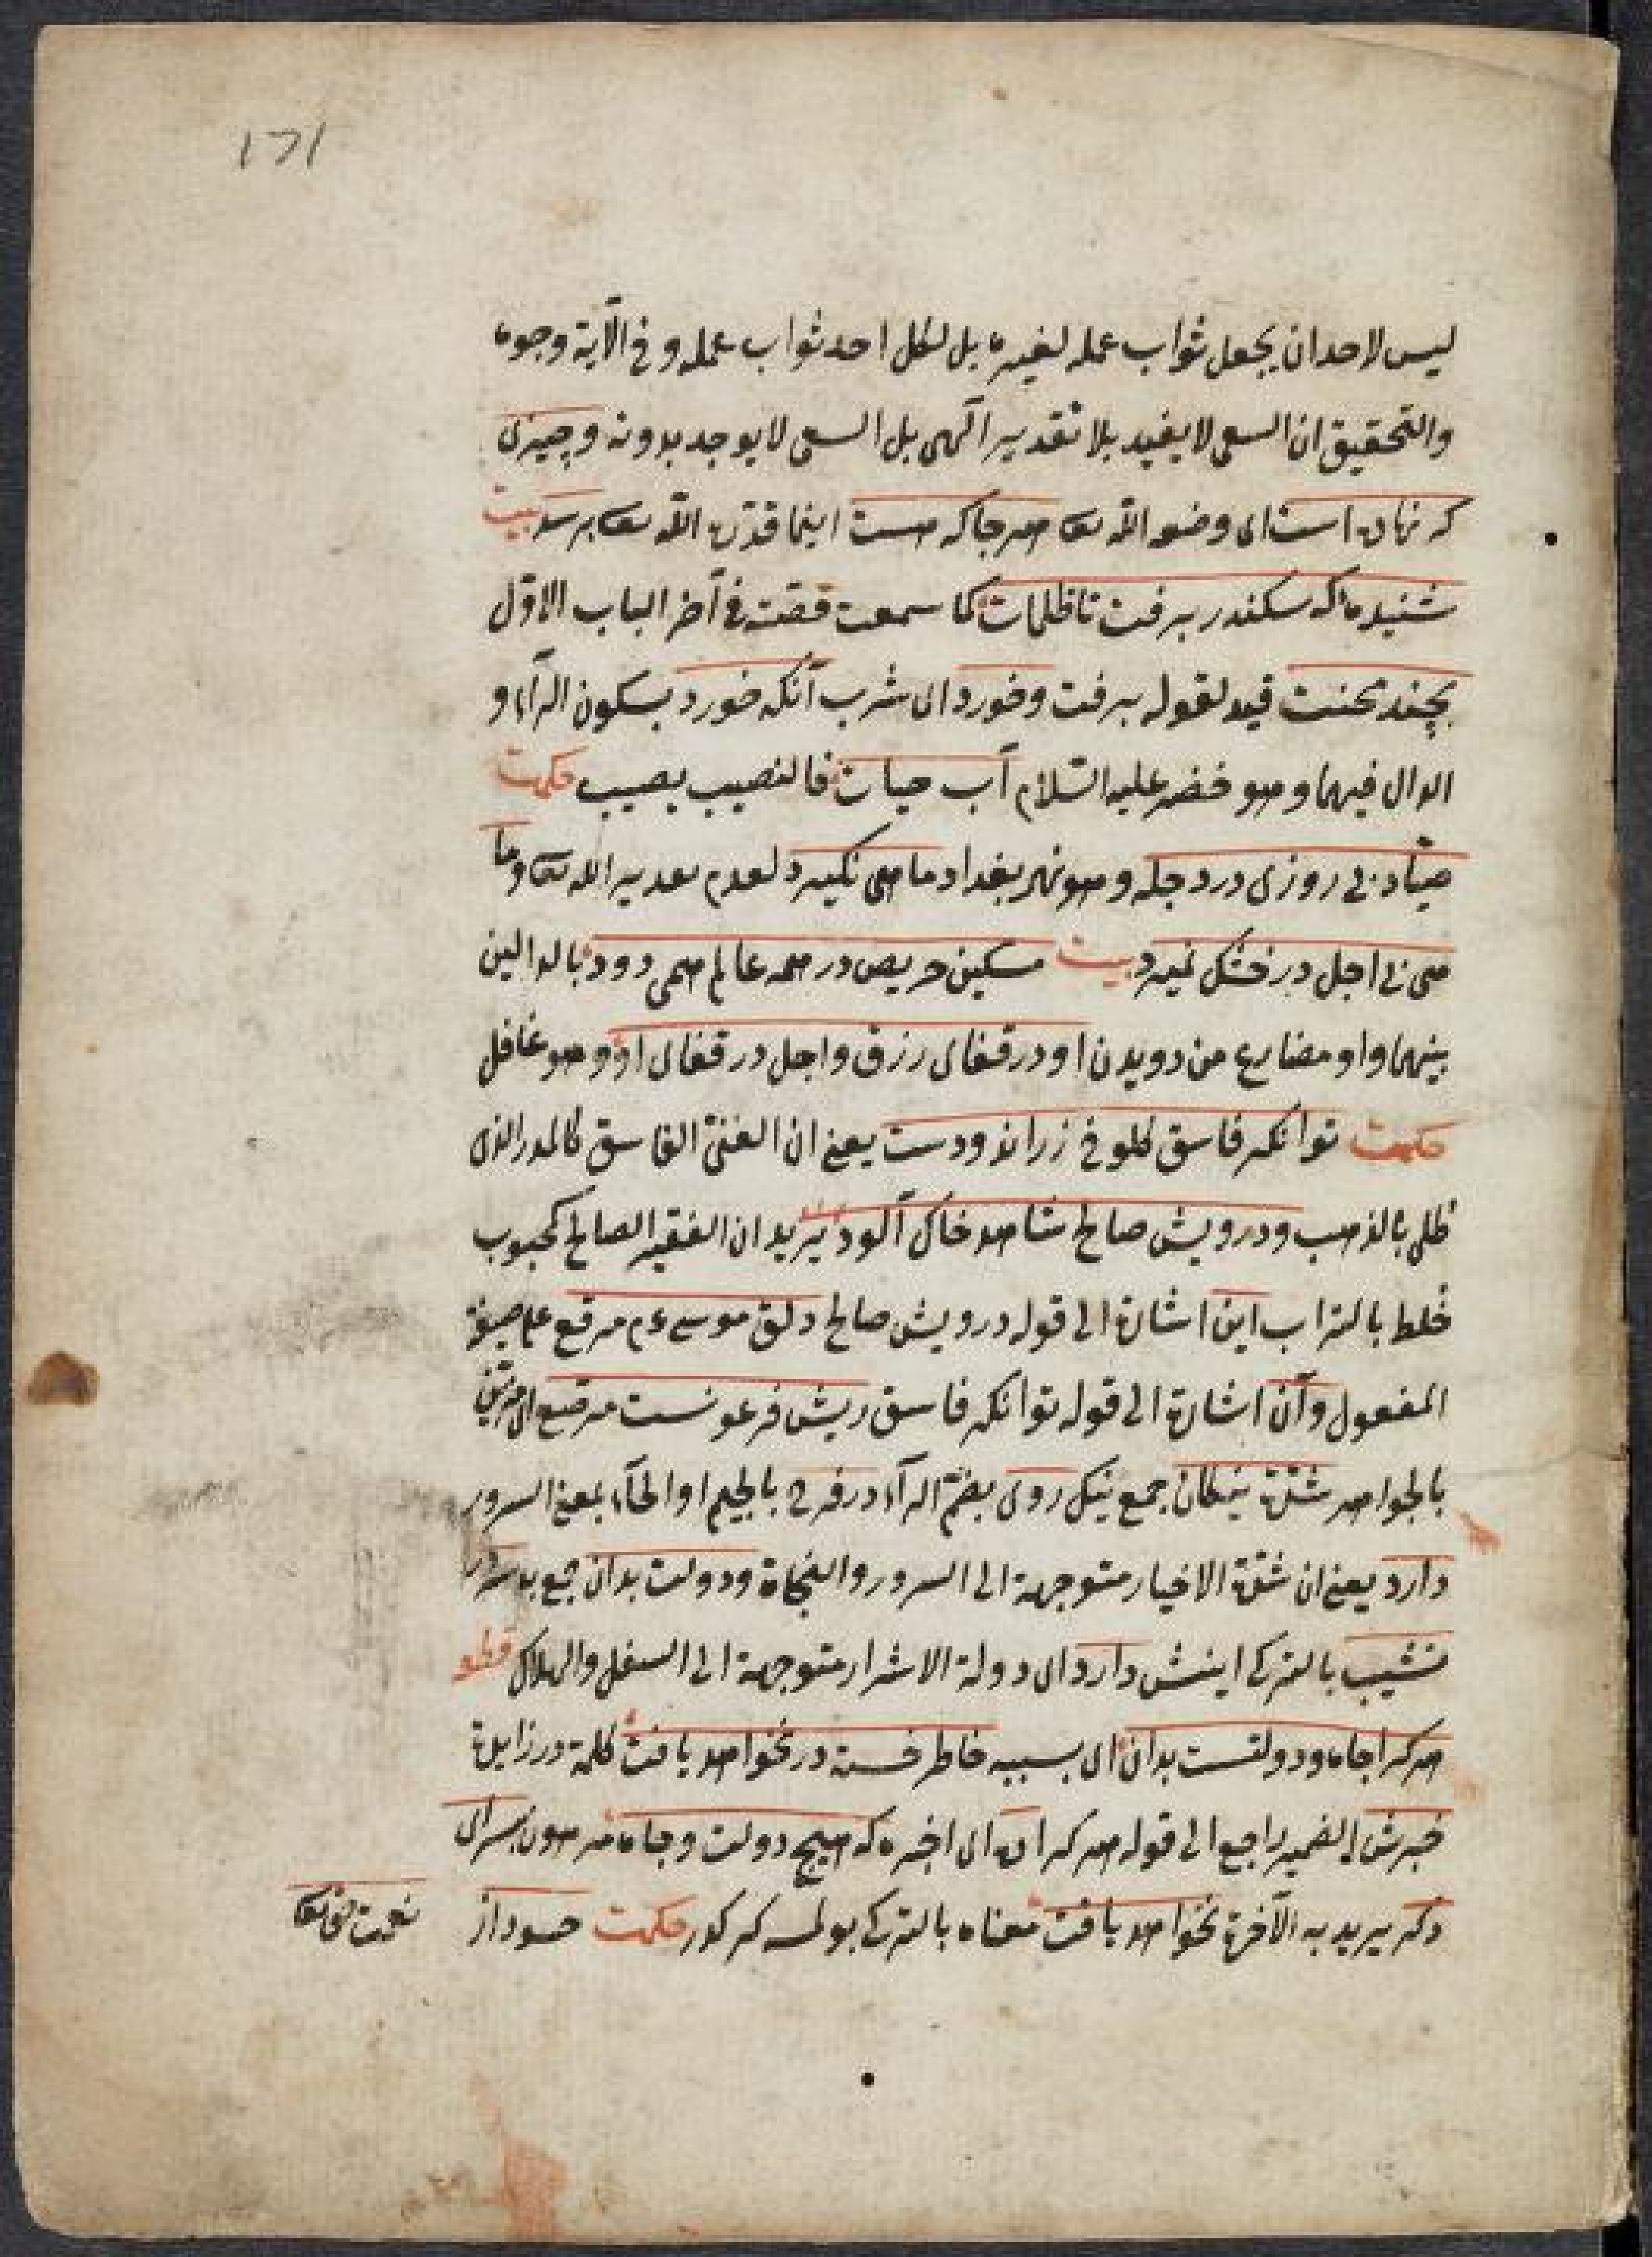 171
ليس لاحد ان يجعل ثواب عمله لغيره بل لكل احد ثواب عمله و فى الآية وجوه
والتحقيق ان السعى لا يفيد بلا تقدير آلهى بل السعى لا يوجد بدونه وچيزى
كه نهاده است اى وضعه الله تعا هر جا كه هست اينما قدّره الله تعا برسد بيت
شنيده كه سكندر برفت تا ظلمات كما سمعت قصّته فى آخر الباب الاوّل
بچند محنت قيد لقوله برفت وخورد اى شرب آنكه خورد بسكون الرآء و
الدال فيهما وهو خضر عليه السّلام آب حيات فالنصيب يصيب حكمت
صيّاد بى روزى در دجله وهو نهر بغداد ماهى نكيرد لعدم تقدير الله تعا وما
هى بى اجل در خشك نميرد بيت مسكين حريص در همه عالم همى دود بالدالين
بينهما واو مضارع من دويدن او در قفاى رزق واجل در قفاى او وهو غافل
حكمت توانكر فاسق كلوخ زر اندودست يعنى ان الغنىّ الفاسق كالمدر الذى
طلى بالذهب ودرويش صالح شاهد خاك آلود يريد ان الفقير الصالح كمحبوب
خلط بالتراب اين اشارة الى قوله درويش صالح دلق موسى ع م مرقع على صيغة
المفعول وآن اشارة الى قوله توانكر فاسق ريش فرعونست مرصع اى مزيّن
بالجواهر شدّة نيكان جمع نيك روى بضمّ الرآء در فرج بالجيم او الحآء بمعنى السرور
دارد يعنى ان شدّة الاخيار متوجهة الى السرور والنجاة ودولت بدان جمع بد سر در
نشيب بالتركى اينش دارد اى دولة الاشرار متوجهة الى السفل والهلاك قطعه
هر كرا جاه ودولتست بدان اى بسببه خاطر خسته در نخواهد يافت كلمة در زايدة
خبرش الضمير راجع الى قوله هر كرا ده اى اخبره كه هيچ دولت وجاه مرهون بسراى
دكر يريد به الآخرة نخواهد يافت معناه بالتركى بولمسه كركدر حكمت حسود از
نعمت حق تعا